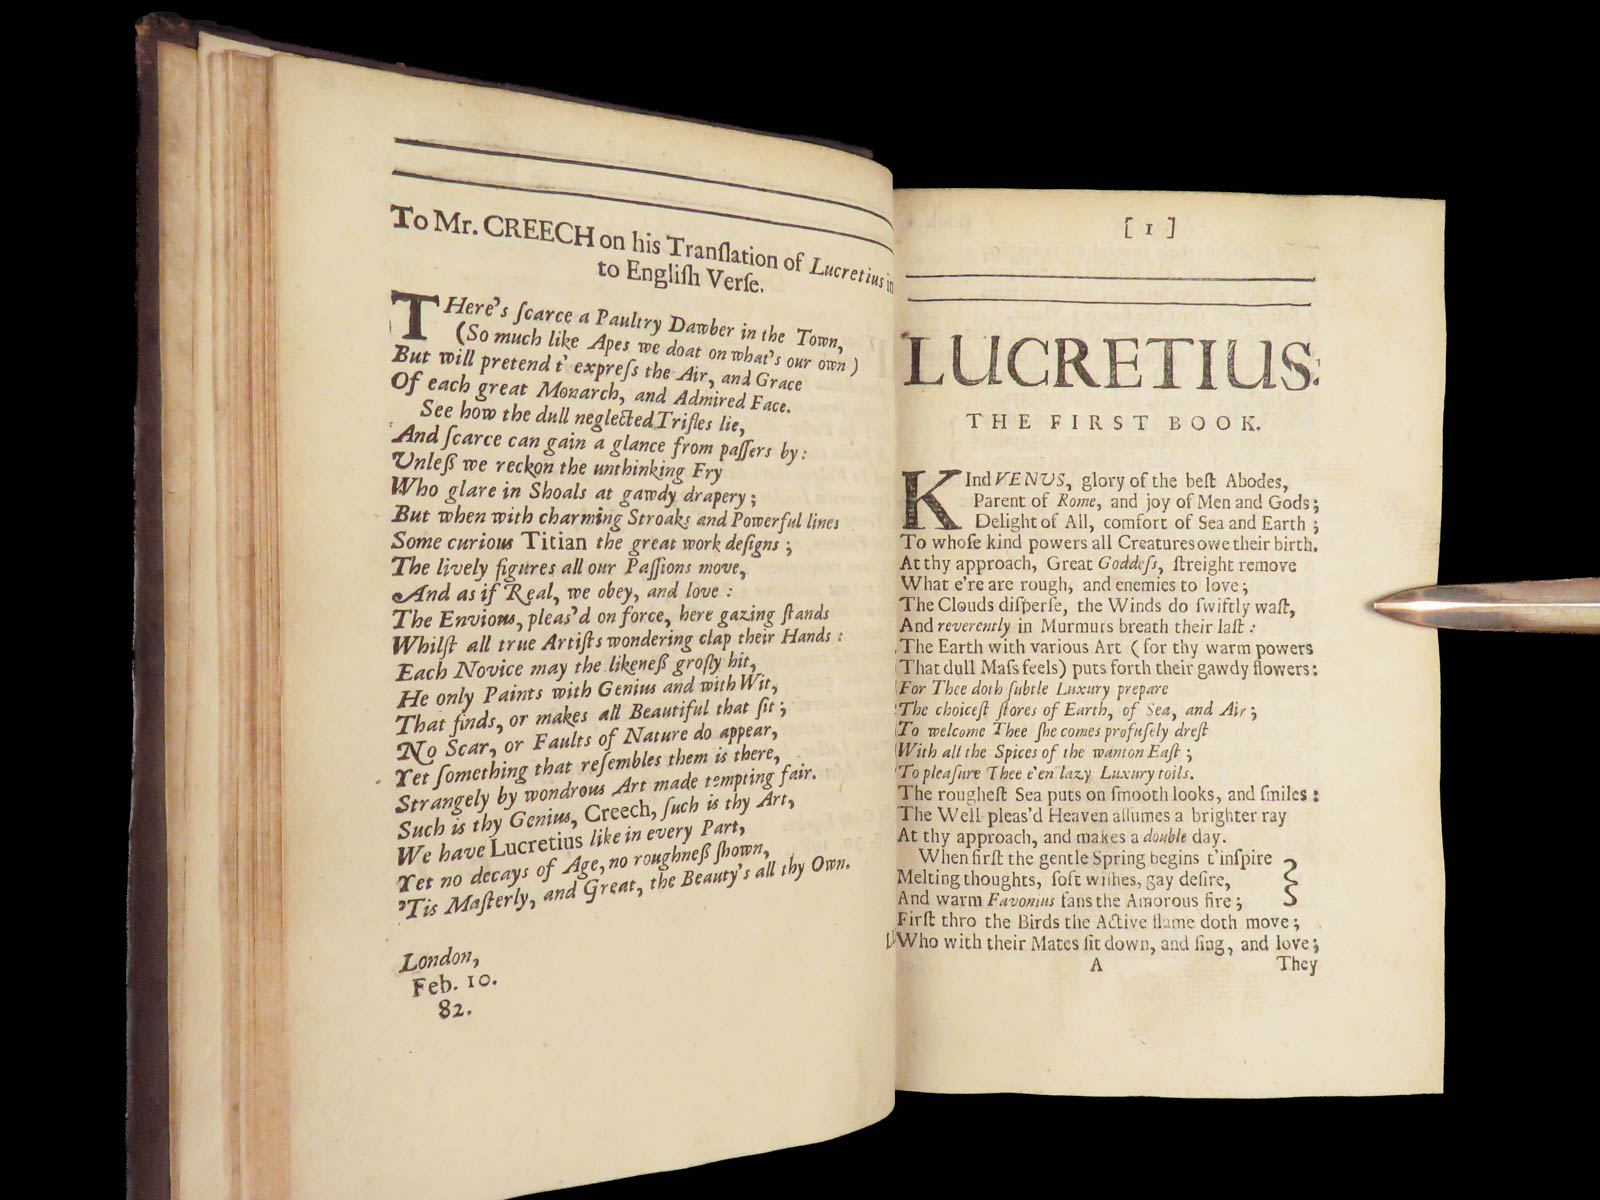 To Mr. CREECH on his Tranſlation of Lucretius in
to Engliſh Verſe.
THere's ſcarce a Paultry Dawber in the Town,
(So much like Apes we doat on what's our own)
But will pretend t' expreſs the Air, and Grace
Of each great Monarch, and Admired Face.
See how the dull neglected Trifles lie,
And ſcarce can gain a glance from paſſers by:
Unleß we reckon the unthinking Fry
Who glare in Shoals at gawdy drapery;
But when with charming Stroaks and Powerful lines
Some curious Titian the great work deſigns;
The lively figures all our Paſſions move,
And as if Real, we obey, and love:
The Envious, pleas'd on force, here gazing ſtands
Whilſt all true Artiſts wondering clap their Hands:
Each Novice may the likeneß groſly hit,
He only Paints with Genius and with Wit,
That finds, or makes all Beautiful that ſit;
No Scar, or Faults of Nature do appear,
Yet ſomething that reſembles them is there,
Strangely by wondrous Art made tempting fair.
Such is thy Genius, Creech, ſuch is thy Art,
We have Lucretius like in every Part,
Yet no decays of Age, no roughneß ſhown,
'Tis Maſterly, and Great, the Beauty's all thy Own.
London,
Feb. 10.
82.
[ 1 ]
LUCRETIUS:
THE FIRST BOOK.
KInd VENUS, glory of the beſt Abodes,
Parent of Rome, and joy of Men and Gods;
Delight of All, comfort of Sea and Earth;
To whoſe kind powers all Creatures owe their birth.
At thy approach, Great Goddeſs, ſtreight remove
What e're are rough, and enemies to love;
The Clouds diſperſe, the Winds do ſwiftly waſt,
And reverently in Murmurs breath their laſt:
The Earth with various Art (for thy warm powers
That dull Maſs feels) puts forth their gawdy flowers:
For Thee doth ſubtle Luxury prepare
The choiceſt ſtores of Earth, of Sea, and Air;
To welcome Thee ſhe comes profuſely dreſt
With all the Spices of the wanton Eaſt;
To pleaſure Thee e'en lazy Luxury toils.
The rougheſt Sea puts on ſmooth looks, and ſmiles:
The Well-pleas'd Heaven aſſumes a brighter ray
At thy approach, and makes a double day.
When firſt the gentle Spring begins t'inſpire
Melting thoughts, ſoft wiſhes, gay deſire,
And warm Favonius fans the Amorous fire;
Firſt thro the Birds the Active flame doth move;
Who with their Mates ſit down, and ſing, and love;
A They